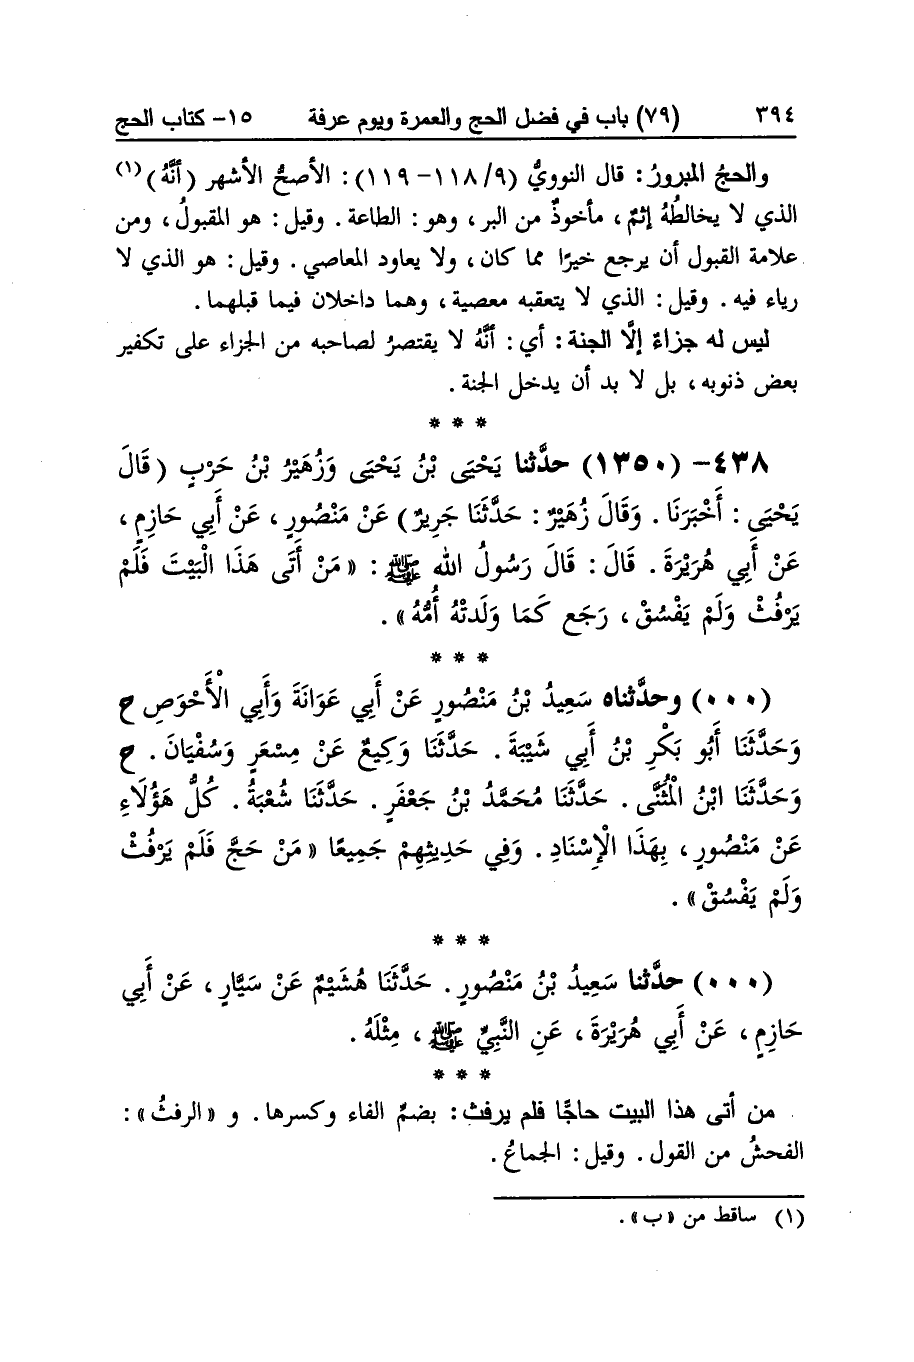 ٣٩٤ (٧٩) باب في فضل الحج والعمرة ويوم عرفة ١٥- كتاب الحج
والحجُ المبرورُ: قال النوويُّ (٩/ ١١٨- ١١٩): الأصحُّ الأشهر (أنَّهُ)(١)
الذي لا يخالطُهُ إثمٌ، مأخوذٌ من البر، وهو: الطاعة. وقيل: هو المقبولُ، ومن
علامة القبول أن يرجع خيرًا مما كان، ولا يعاود المعاصي. وقيل: هو الذي لا
رياء فيه. وقيل: الذي لا يتعقبه معصية، وهما داخلان فيما قبلهما.
ليس له جزاءٌ إلَّا الجنة: أي: أنَّهُ لا يقتصرُ لصاحبه من الجزاء على تكفير
بعض ذنوبه، بل لا بد أن يدخل الجنة.
* * *
٤٣٨- (١٣٥٠) حدَّثنا يَحْيَى بْنُ يَحْيَى وَزُهَيْرُ بْنُ حَرْبٍ (قَالَ
يَحْيَى: أَخْبَرَنَا. وَقَالَ زُهَيْرٌ: حَدَّثَنَا جَرِيرٌ) عَنْ مَنْصُورٍ، عَنْ أَبِي حَازِمٍ،
عَنْ أَبِي هُرَيْرَةَ. قَالَ: قَالَ رَسُولُ الله ﷺ: «مَنْ أَتَى هَذَا الْبَيْتَ فَلَمْ
يَرْفُثْ وَلَمْ يَفْسُقْ، رَجَع كَمَا وَلَدتْهُ أُمُّهُ».
* * *
(٠٠٠) وحدَّثناه سَعِيدُ بْنُ مَنْصُورٍ عَنْ أَبِي عَوَانَةَ وَأَبِي الْأَحْوَصِ ح
وَحَدَّثَنَا أَبُو بَكْرِ بْنُ أَبِي شَيْبَةَ. حَدَّثَنَا وَكِيعٌ عَنْ مِسْعَرٍ وَسُفْيَانَ. ح
وَحَدَّثَنَا ابْنُ الْمُثَنَّى. حَدَّثَنَا مُحَمَّدُ بْنُ جَعْفَرٍ. حَدَّثَنَا شُعْبَةُ. كُلُّ هَؤُلَاءِ
عَنْ مَنْصُورٍ، بِهَذَا الْإِسْنَادِ. وَفِي حَدِيثِهِمْ جَمِيعًا «مَنْ حَجَّ فَلَمْ يَرْفُثْ
وَلَمْ يَفْسُقْ».
* * *
(٠٠٠) حدَّثنا سَعِيدُ بْنُ مَنْصُورٍ. حَدَّثَنَا هُشَيْمٌ عَنْ سَيَّارٍ، عَنْ أَبِي
حَازِمٍ، عَنْ أَبِي هُرَيْرَةَ، عَنِ النَّبِيِّ ﷺ، مِثْلَهُ.
* * *
من أتى هذا البيت حاجًا فلم يرفث: بضمِّ الفاء وكسرها. و «الرفثُ»:
الفحشُ من القول. وقيل: الجماعُ.
(١) ساقط من «ب».